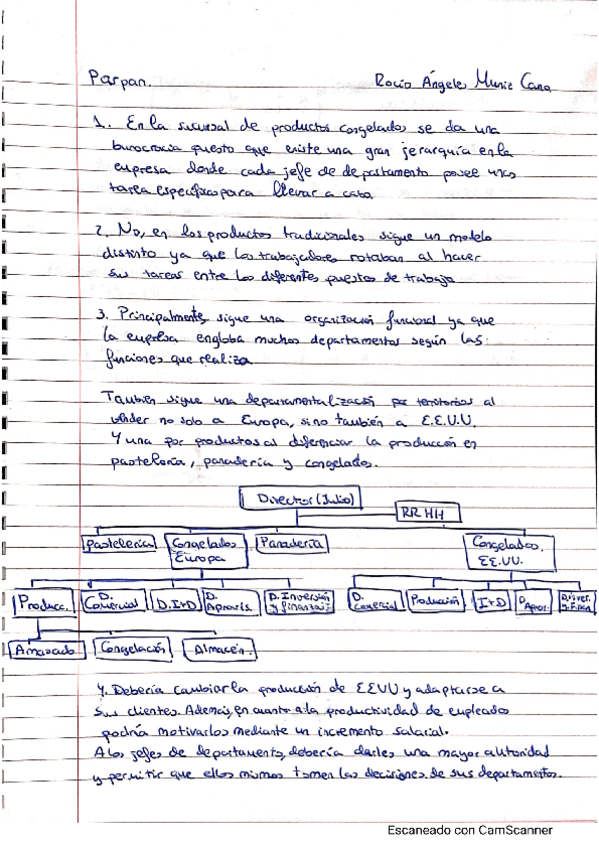 Parpan. Rocío Ángeles Muniz Cana
1. En la sucursal de productos congelados se da una
burocracia puesto que existe una gran jerarquía en la
empresa donde cada jefe de departamento posee unas
tarea específicas para llevar a cabo.
2. No, en los productos tradicionales sigue un modelo
distinto ya que los trabajadores rotaban al hacer
sus tareas entre los diferentes puestos de trabajo
3. Principalmente, sigue una organización funcional ya que
la empresa engloba muchos departamentos según las
funciones que realiza
También sigue una departamentalización por territorios al
vender no solo a Europa, sino también a E.E.U.U.
Y una por productos al diferenciar la producción en
pastelería, panadería y congelados.
Director (Julio)
RRHH
Pastelería Congelados Europa Panadería Congelados. EE.UU.
Producc. D. Comercial D. I+D D. Aprovis. D. Inversión y finanzas D. Comercial Producción I+D D. Aprov. D. inver. y Finan.
Amasado Congelación Almacén.
4. Debería cambiar la producción de EEUU y adaptarse a
sus clientes. Además, en cuanto a la productividad de empleados
podría motivarlos mediante un incremento salarial.
A los jefes de departamento, debería darles una mayor autoridad
y permitir que ellos mismos tomen las decisiones de sus departamentos.
Escaneado con CamScanner